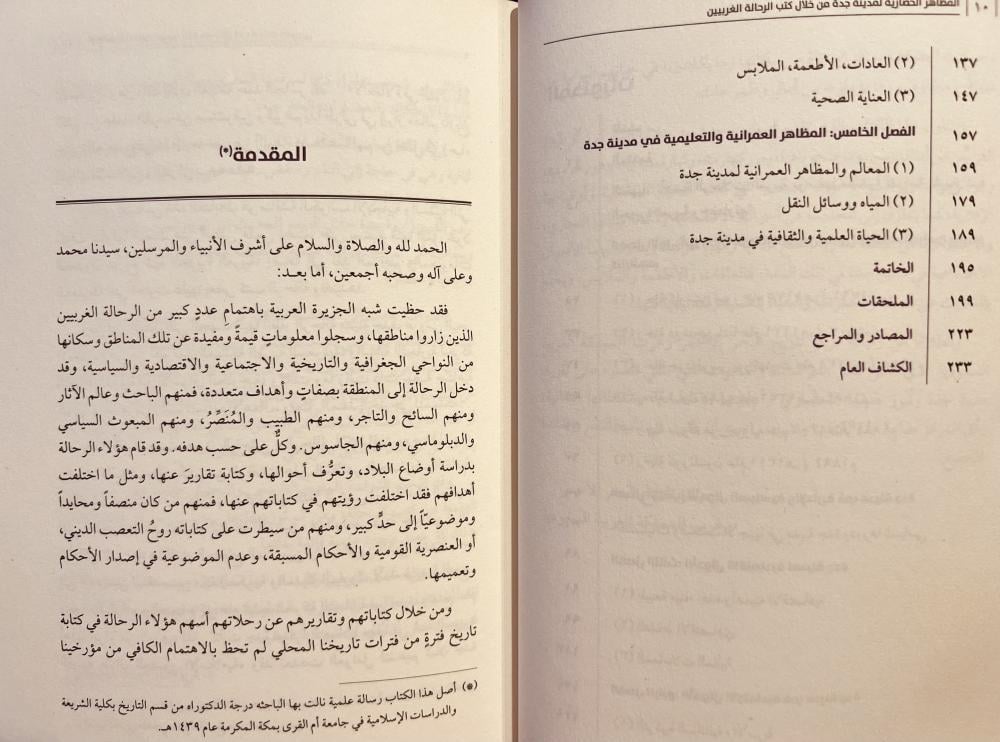 ١٠ | المظاهر الحضارية لمدينة جدة من خلال كتب الرحالة الغربيين
(٢) العادات، الأطعمة، الملابس ١٣٧
(٣) العناية الصحية ١٤٧
الفصل الخامس: المظاهر العمرانية والتعليمية في مدينة جدة ١٥٧
(١) المعالم والمظاهر العمرانية لمدينة جدة ١٥٩
(٢) المياه ووسائل النقل ١٧٩
(٣) الحياة العلمية والثقافية في مدينة جدة ١٨٩
الخاتمة ١٩٥
الملحقات ١٩٩
المصادر والمراجع ٢٢٣
الكشاف العام ٢٣٣
المقدمة(*)
الحمد لله والصلاة والسلام على أشرف الأنبياء والمرسلين، سيدنا محمد
وعلى آله وصحبه أجمعين، أما بعـد:
فقد حظيت شبه الجزيرة العربية باهتمامِ عددٍ كبير من الرحالة الغربيين
الذين زاروا مناطقها، وسجلوا معلوماتٍ قيمةً ومفيدة عن تلك المناطق وسكانها
من النواحي الجغرافية والتاريخية والاجتماعية والاقتصادية والسياسية، وقد
دخل الرحالة إلى المنطقة بصفاتٍ وأهداف متعددة، فمنهم الباحث وعالم الآثار
ومنهم السائح والتاجر، ومنهم الطبيب والمُنَصِّرُ، ومنهم المبعوث السياسي
والدبلوماسي، ومنهم الجاسوس. وكلٌّ على حسب هدفه. وقد قام هؤلاء الرحالة
بدراسة أوضاع البلاد، وتعرُّف أحوالها، وكتابة تقاريرَ عنها، ومثل ما اختلفت
أهدافهم فقد اختلفت رؤيتهم في كتاباتهم عنها، فمنهم من كان منصفاً ومحايداً
وموضوعيّاً إلى حدٍّ كبير، ومنهم من سيطرت على كتاباته روحُ التعصب الديني،
أو العنصرية القومية والأحكام المسبقة، وعدم الموضوعية في إصدار الأحكام
وتعميمها.
ومن خلال كتاباتهم وتقاريرهم عن رحلاتهم أسهم هؤلاء الرحالة في كتابة
تاريخ فترةٍ من فترات تاريخنا المحلي لم تحظ بالاهتمام الكافي من مؤرخينا
(*) أصل هذا الكتاب رسالة علمية نالت بها الباحثه درجة الدكتوراه من قسم التاريخ بكلية الشريعة
والدراسات الإسلامية في جامعة أم القرى بمكة المكرمة عام ١٤٣٩هـ.